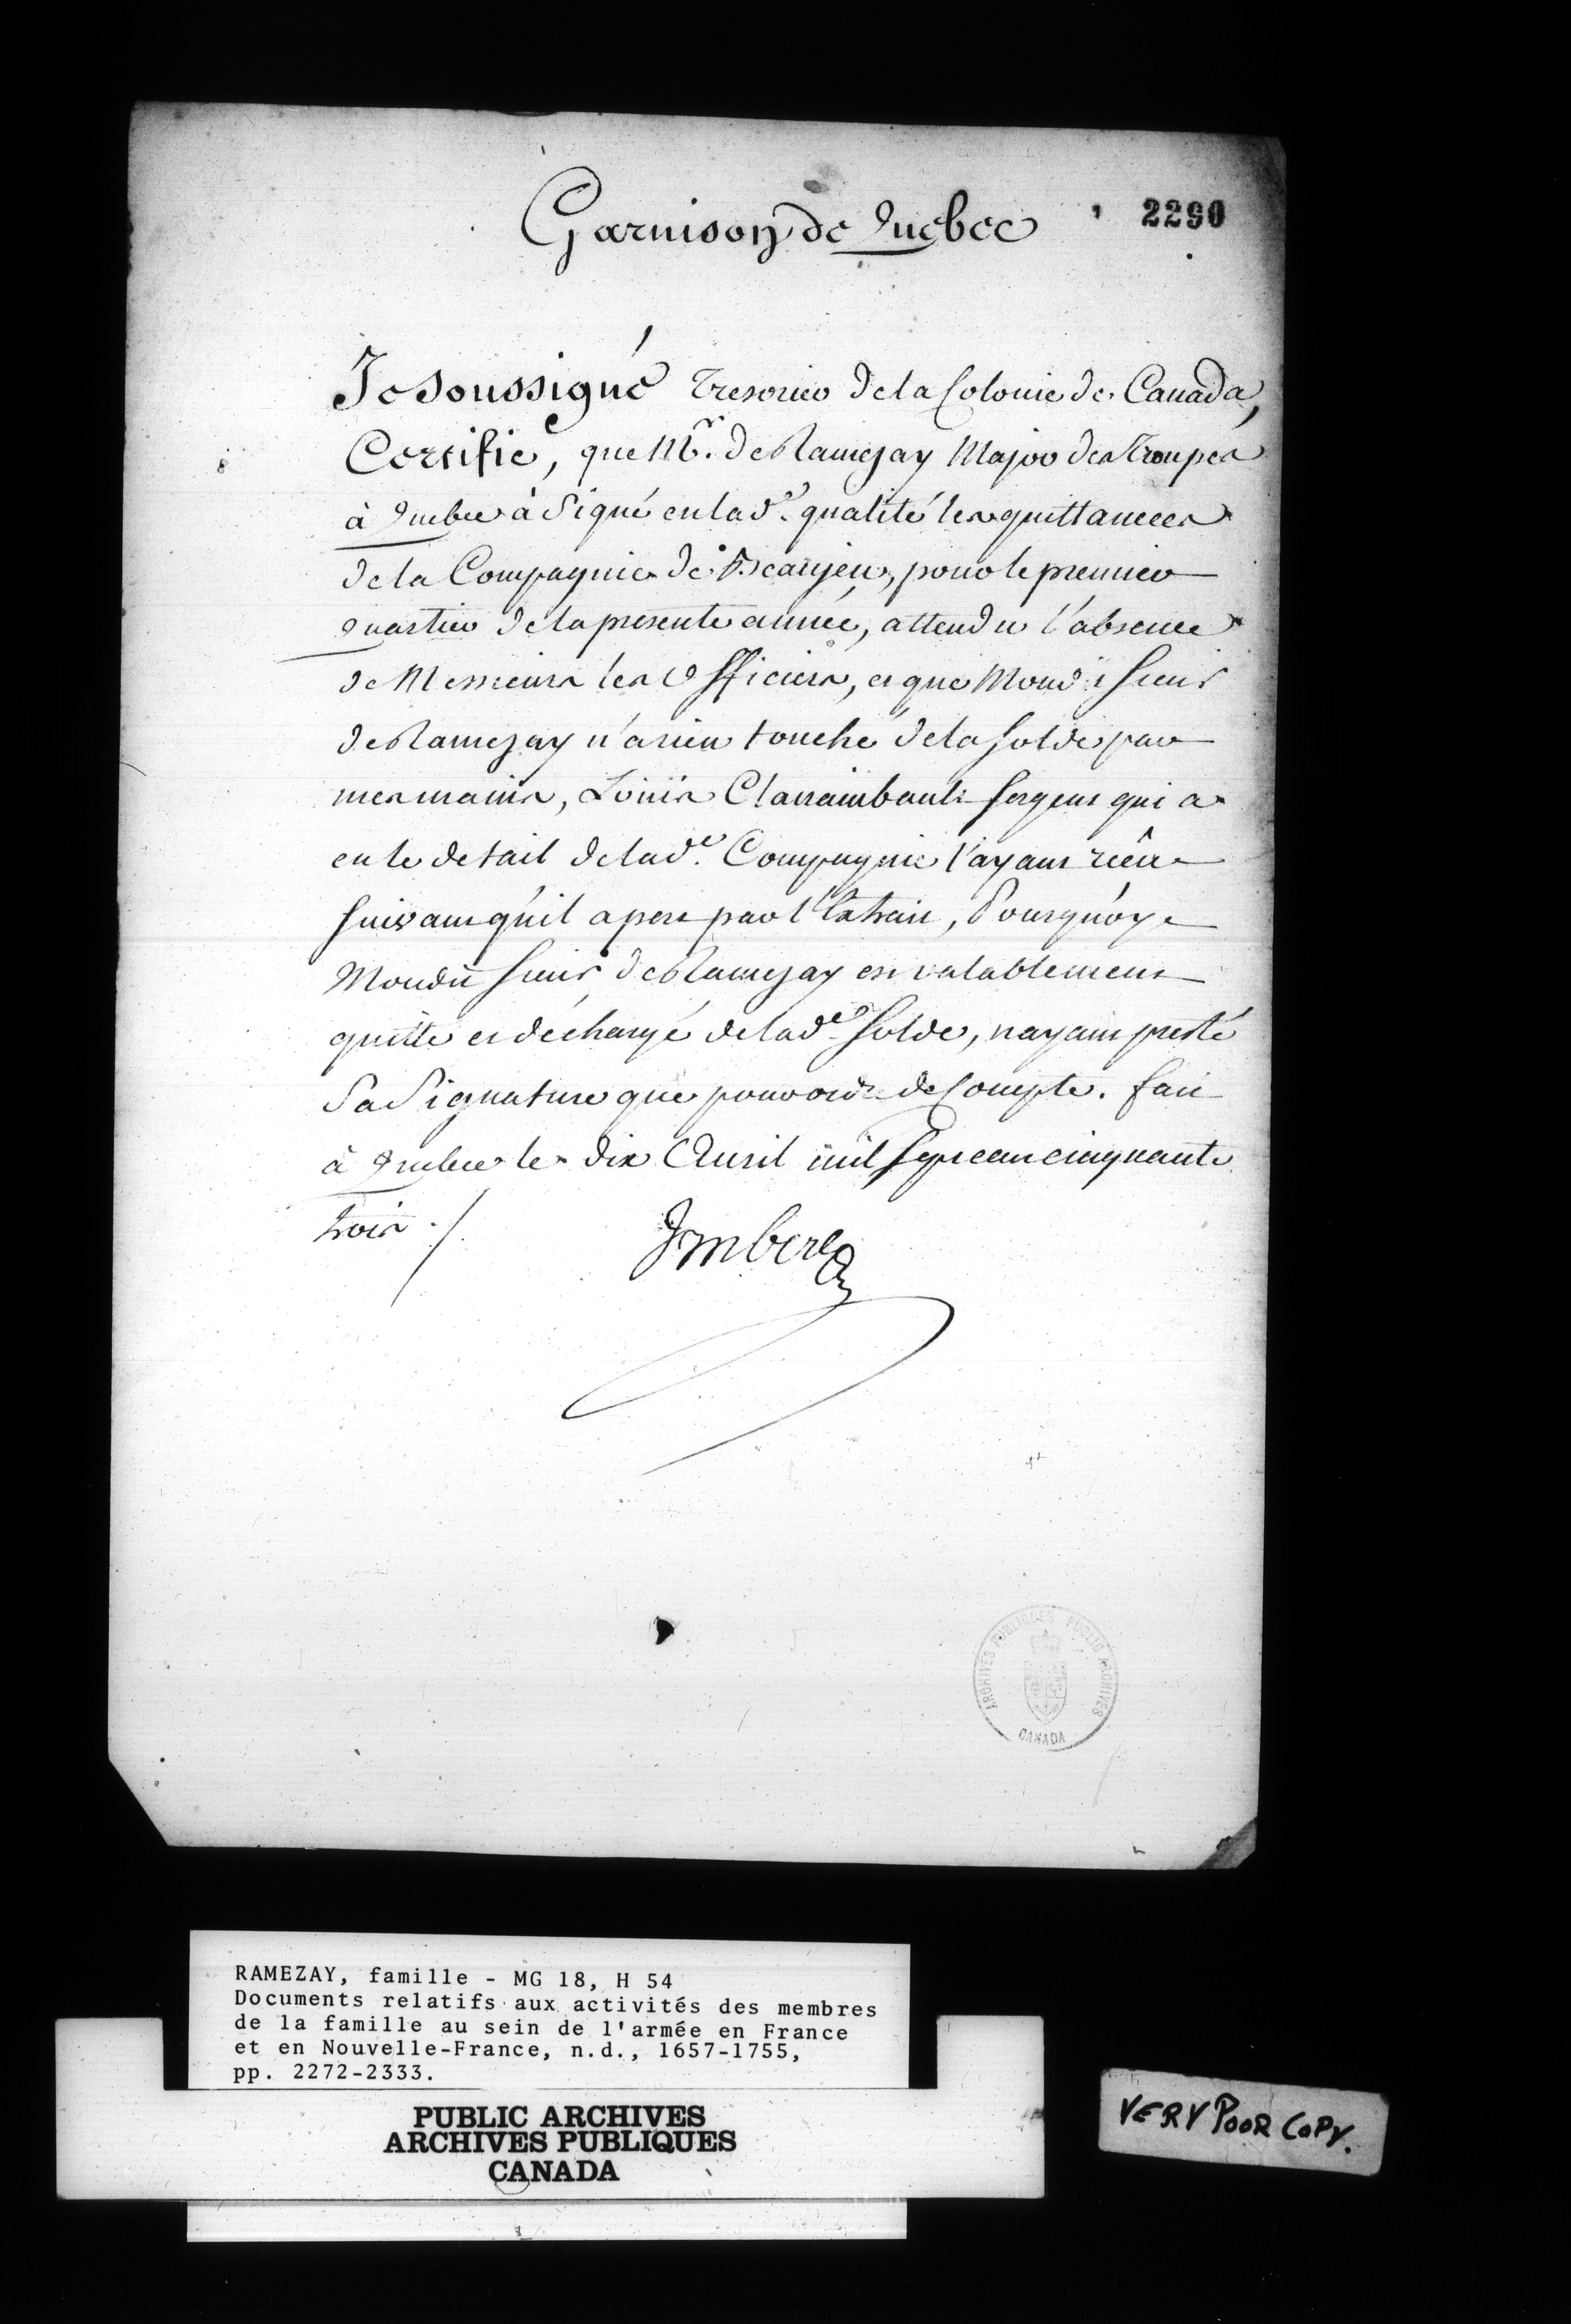 Garnison de Quebec
2290
Je Soussigné Tresorier de la Colonie de Canada,
Certifie, que Mr. de Ramezay Major des Troupes
à Quebec à Signé en lad.e qualité les quittances
de la Compagnie de Beaujeu, pour le premier
quartier de la presente année, attendu l'absence
de Messieurs les Officiers, et que Mondit Sieur
de Ramezay n'a rien touché de la Solde par
mes mains, Loüis Clanaimbault Sergent qui a
eu le detail de lad.e Compagnie l'ayant reçû
Suivant qu'il apert par l'Extrait, Pourquoy
Mondit Sieur de Ramezay est valablement
quitte et déchargé de lad.e Solde, nayant presté
Sa Signature que pour ordre de Compte. fait
à Quebec le dix Avril mil Sept cent cinquante
trois ./.
Imbert
ARCHIVES PUBLIQUES PUBLIC ARCHIVES
CANADA
RAMEZAY, famille - MG 18, H 54
Documents relatifs aux activités des membres
de la famille au sein de l'armée en France
et en Nouvelle-France, n.d., 1657-1755,
pp. 2272-2333.
PUBLIC ARCHIVES
ARCHIVES PUBLIQUES
CANADA
VERY POOR COPY.